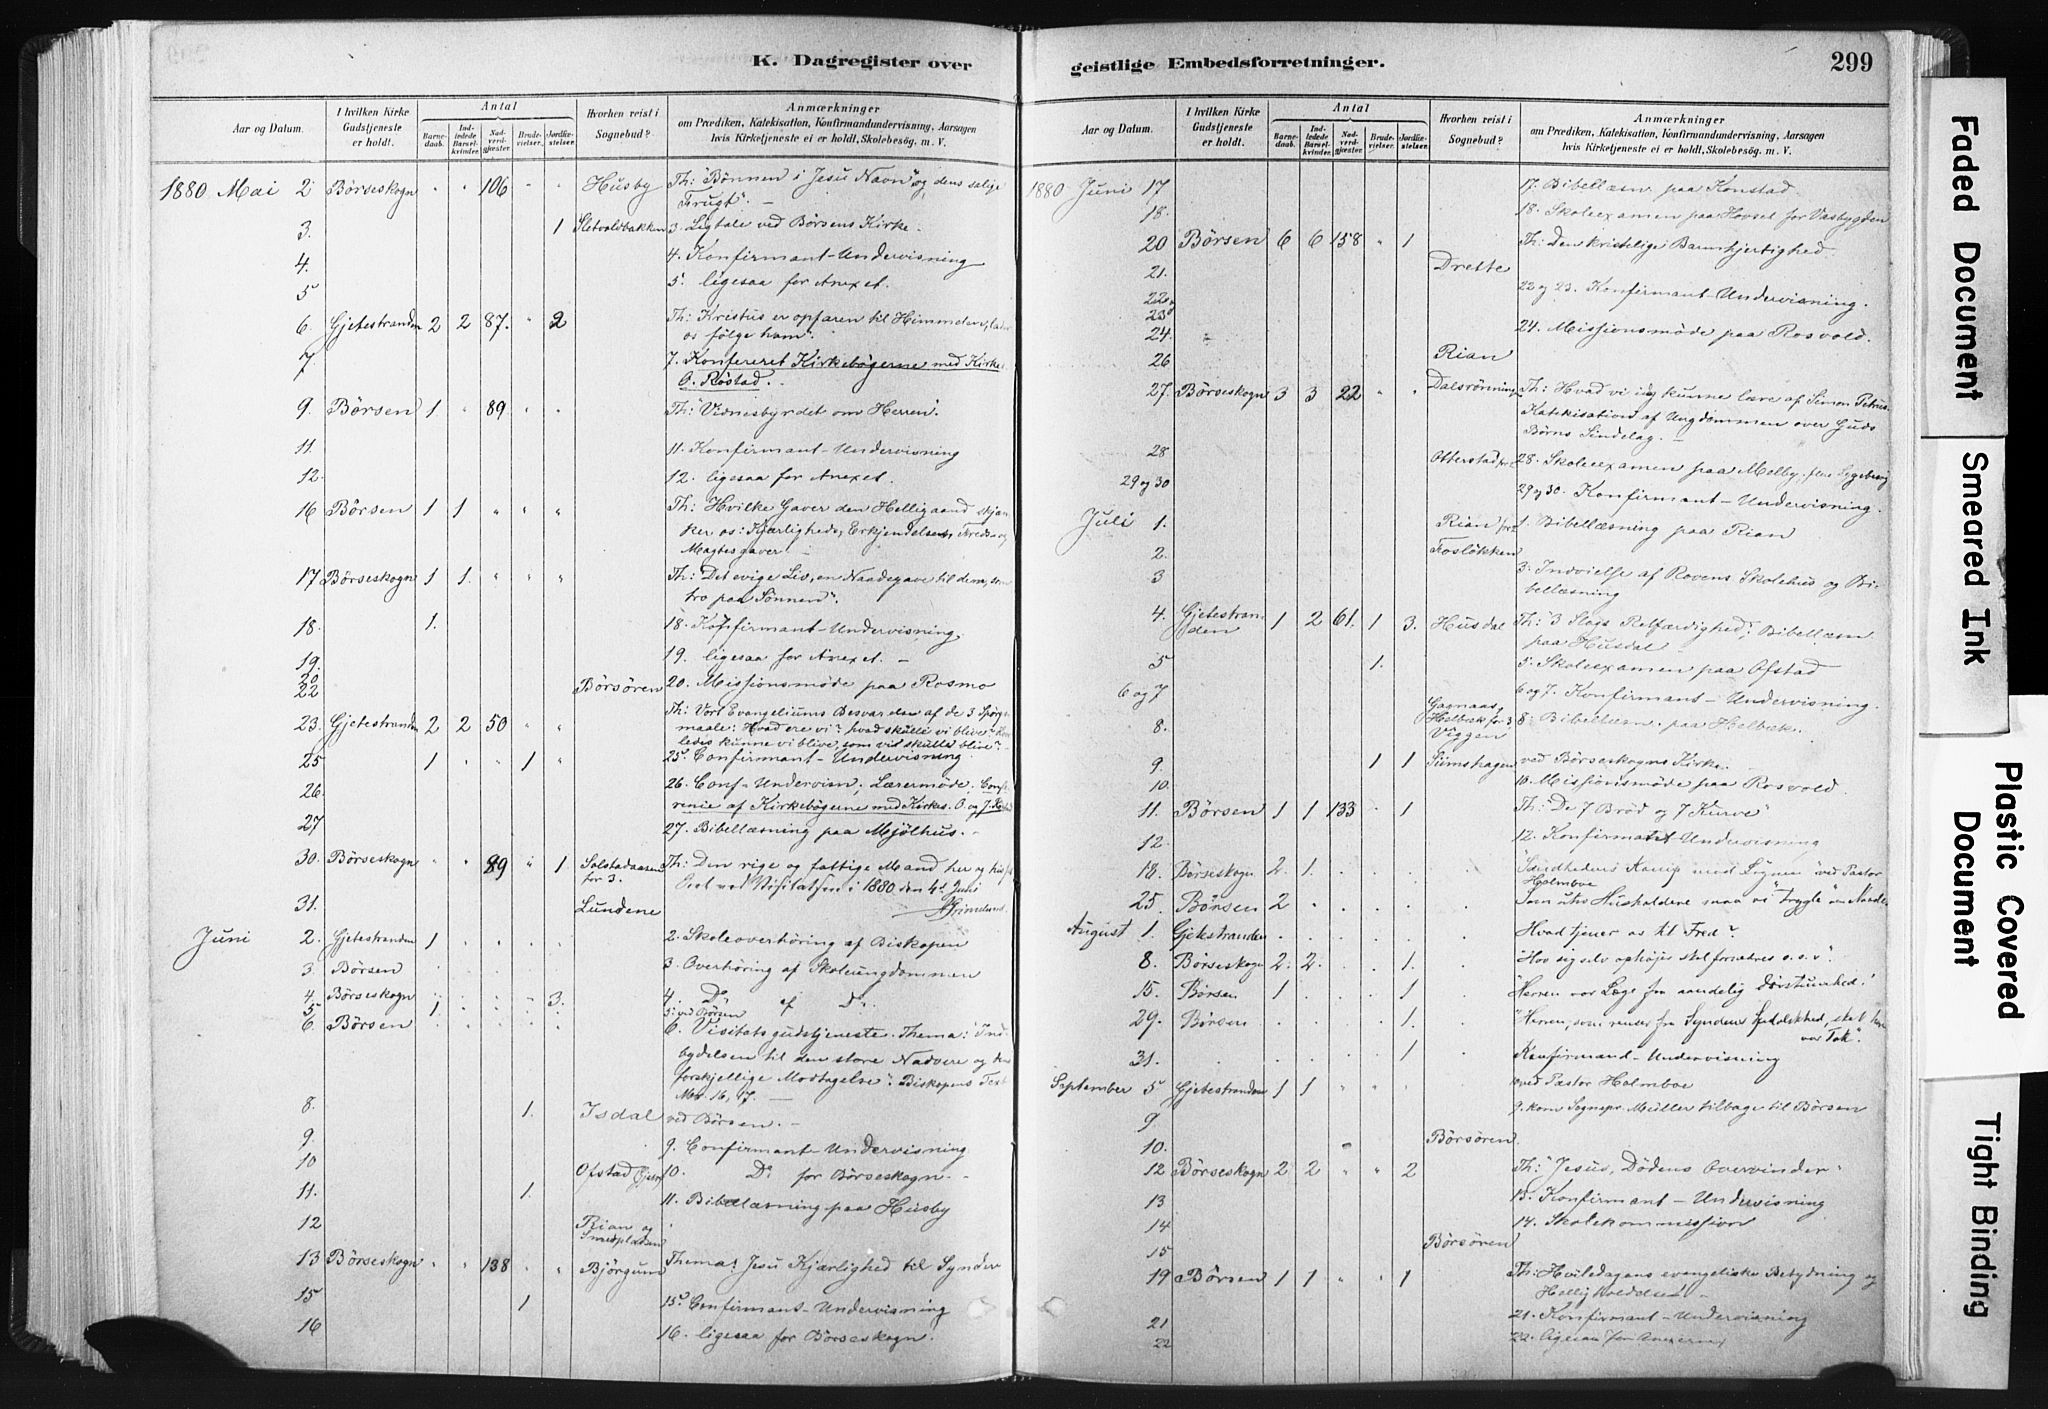 K. Dagregister over
Aar og Datum.
I hvilken Kirke Gudstjeneste er holdt.
Antal
Barnedaab. Indledede Barselkvinder. Nadverdgjæster. Brudevielser. Jordfæstelser.
Hvorhen reist i Sognebud?
Anmærkninger
om Prædiken, Katekisation, Konfirmandundervisning, Aarsagen
hvis Kirketjeneste ei er holdt, Skolebesøg. m. V.
1880 Mai 2 Børseskogn " " 106 " " Husby Th: "Bønnen i Jesu Navn" og dens salige
Frugt". —
3. 1 Sletvoldbakken 3. Ligtale ved Børsens Kirke.
4. 4. Konfirmant-Undervisning
5 5. ligesaa for Anexet.
6. Gjetestranden 2 2 87. " 2 Th: Kristus er opfaren til Himmelen, lader
os følge ham".
7. 7. Konfereret Kirkebøgerne med Kirkes.
O. Røstad.
9. Børsen 1 " 89 " " Th: "Vidnesbyrdet om Herren".
11. 11. Konfirmant-Undervisning
12. 12. ligesaa for Anexet.
16 Børsen 1 1 " " " Th: Hvilke Gaver den Helligaand skjæn-
ker os: Kjærligheds, Erkjendelsens, Freds- og
Magtesgaver —
17 Børseskogn 1 1. " " " Th: "Det evige Liv, en Naadegave til dem, som
tro paa Sønnen".
18. 1. 18. Konfirmant-Undervisning.
19. 19. ligesaa for Anexet. —
20 20. Missionsmøde paa Rosmo
22 Børsøren
23. Gjetestranden 2 2 50 " " Th: Vort Evangeliums Besvarelse af de 3 Spørgs-
maale: Hvad ere vi? hvad skulle vi blive?
ledes kunne vi blive, som vi skulle blive".
25 1 " " 1 " 25. Confirmant-Undervisning.
26. 26. Conf-Undervisn, Lærermøde, Confe-
rence af Kirkebøgerne med Kirkes. O. og J.
27 27. Bibellæsning paa Mjølhus. —
30. Børseskogn " " 89 " 1. Solstadaasen Th: Den rige og fattige Mand her og hisset
for 3. Seet ved Visitatsen i 1880 den 4d Juni
31. Lundene Grimelund.
Juni 2. Gjetestranden 1 . . . . 2. Skoleoverhøring af Biskopen
3. Børsen 3. Overhøring af Skoleungdommen
4. Børseskogn . . . . 3. 4. Do af Do.
5 1 5. ved Børsen
6. Børsen 6. Visitatsgudstjeneste. Thema: "Ind-
bydelsen til den store Nadvere og den
forskjellige Modtagelse". Biskopens Text
Mat. 16, 17. —
8. 1. Isdal ved Børsen. —
9 9. Confirmant-Undervisning
10 Ofstad 10. Do for Børseskogn. —
11. 1. 11. Bibellæsning paa Husby
12 Rian og
13 Børseskogn " " 138 " " Bjørgum Thema: Jesu Kjærlighed til Synder
15 1 15. Confirmant-Undervisning
16 16. ligesaa for Børseskogn.
geistlige Embedsforretninger.
299
Aar og Datum.
I hvilken Kirke Gudstjeneste er holdt.
Antal
Barnedaab. Indledede Barselkvinder. Nadverdgjæster. Brudevielser. Jordfæstelser.
Hvorhen reist i Sognebud?
Anmærkninger
om Prædiken, Katekisation, Konfirmandundervisning, Aarsagen
hvis Kirketjeneste ei er holdt, Skolebesøg. m. V.
1880 Juni 17 17. Bibellæsn. paa Konstad.
18. 18. Skoleexamen paa Hovsel for Vasbygden
20 Børsen 6 6 158 " 1 Th: Den kristelige Barmhjertighed.
21. Drette
22. 22 og 23. Konfirmant-Undervisning.
23
24. 24. Missionsmøde paa Rosvold.
26 Rian
27. Børseskogn 3 3 22 " " Dalsrønning Th: Hvad vi og kunne lære af Simon Petrus.
Katekisation af Ungdommen over Guds
Børns Sindelag. —
28 Otterstad 28. Skoleexamen paa Melby,
29 og 30 29 og 30. Konfirmant-Undervisning.
Juli 1. Rian 1. Bibellæsning paa Rian
2. Fosløkken
3 3. Indvielse af Rovens Skolehus og Bi-
bellæsning
4. Gjetestran- 1 2 61. 1 3. Husdal Th: "3 Slags Retfærdighed". Bibellæsn.
den paa Husdal
5 1. 5. Skoleexamen paa Ofstad
6 og 7 6 og 7. Konfirmant-Undervisning.
8. Helbæk for 3 8. Bibellæsn. paa Helbæk.
Viggen
9. 1 1 ved Børseskogns Kirke. —
10. 10. Missionsmøde paa Rosvold.
11. Børsen 1 1 133 . 1 Th: "De 7 Brød og 7 Kurve"
12. 12. Konfirmant-Undervisning
18. Børseskogn 2 1 . . . "Sandhedens Kamp mod Løgnen" ved Pastor
Holmboe
25. Børsen 2 . . . . Som utro Husholdere maa vi "trygle" om Naade
August 1. Gjetestranden . . . . . Hvad tjener os til Fred?
8. Børseskogn 2. 2. . . 1. "Hvo sig selv ophøjer skal fornedres o.s.v."
15. Børsen 1 . . . 1 "Herren vor Læge fra aandelig Døvstumhed!
29. Børsen . . . . 1. "Herren, som renser fra Syndens Spedalskhed, skal have
vor Tak".
31. . . . . 1 Konfirmand-Undervisning
September 5 Gjetestranden 1 1 " " ved Pastor Holmboe
9 9. kom Sognepr. Müller tilbage til Børsen
10. Børsøren
12 Børseskogn 2 2 " " 2 Th: "Jesus, Dødens Overvinder"
13 13. Konfirmant-Undervisning
14 14. Skolekommission
15 Børsøren
19 Børsen 1 1 " " 1 Th: Hviledagens evangeliske Betydning og
Helligholdelse. —
21 21. Konfirmant-Undervisning
22 22. ligesaa for Anxerne
Faded Document
Smeared Ink
Plastic Covered
Document
Tight Binding